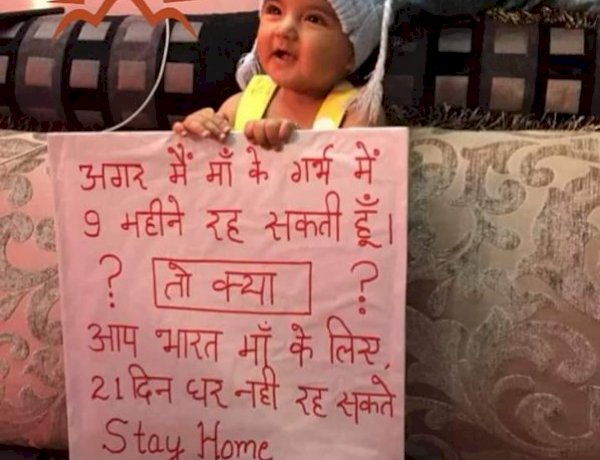 अगर मैं माँ के गर्भ में
9 महीने रह सकती हूँ।
? तो क्या ?
आप भारत माँ के लिए,
21 दिन घर नही रह सकते
Stay Home